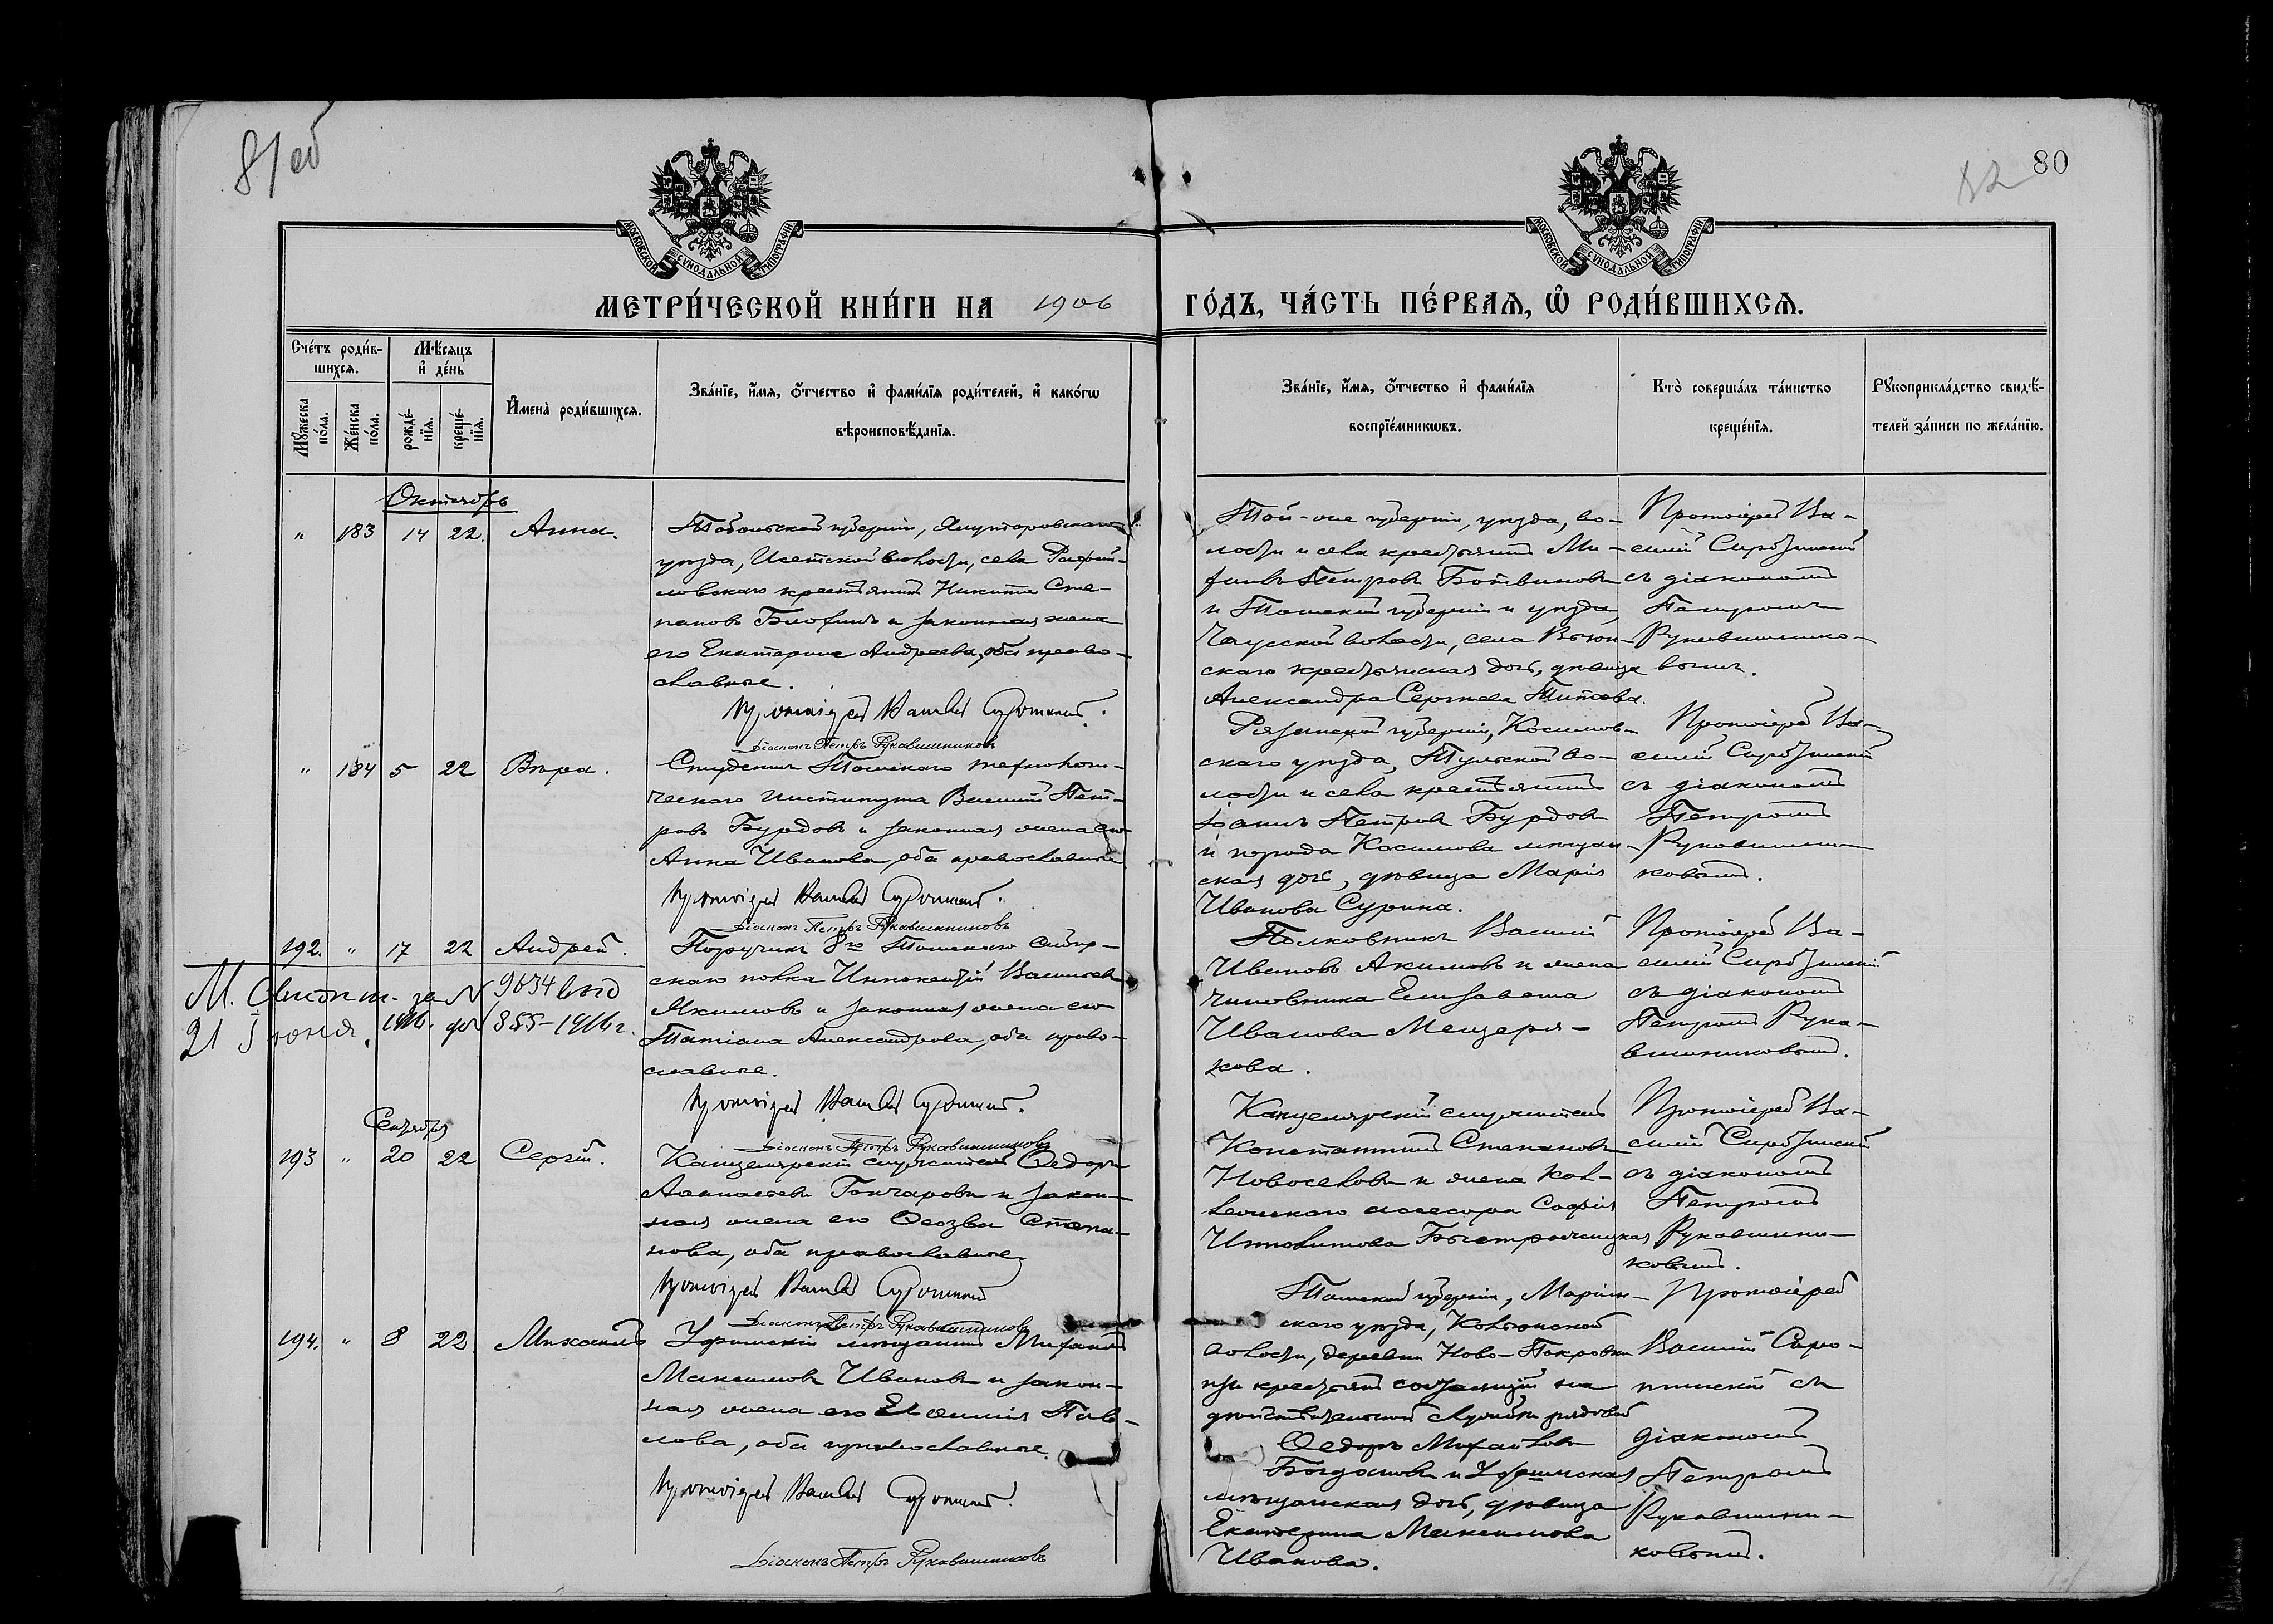 81 об
80
82
МОСКОВСКОЙ СѴНОДАЛЬНОЙ ТИПОГРАФІИ
МОСКОВСКОЙ СѴНОДАЛЬНОЙ ТИПОГРАФІИ
МЕТРИ́ЧЕСКОЙ КНИ́ГИ НА 1906 ГО́ДЪ, ЧА́СТЬ ПЕ́РВАЯ, Ѽ РОДИ́ВШИХСЯ.
Сче́тъ роди́в-
шихся.
Мѣ́сяцъ
и҆ де́нь
Мꙋ́жеска
по́ла.
Же́нска
по́ла.
рожде́-
нїя.
креще́-
нїя.
И҆мена̀ роди́вшихся.
Зва́нїе, и҆́мя, ѻ҆́тчество и҆ фами́лїя роди́телей, и҆ како́гѡ
вѣроисповѣ́данїя.
Зва́нїе, и҆́мя, ѻ҆́тчество и҆ фами́лїя
воспрїе́мникѡвъ.
Кто̀ соверша́лъ та́инство
креще́нїя.
Рꙋкоприкла́дство свидѣ́-
телей за́писи по жела́нїю.
Октябрь
" 183 14 22. Анна.
Тобольской губерніи, Ялуторовскаго
уѣзда, Исетской волости, села
крестьянинъ Никита Сте-
пановъ и законная жена
его Екатерина Андреева, оба право-
славные.
Протоіерей Василій Сиротинскій.
Діаконъ Петръ Рукавишниковъ
Той-же губерніи, уѣзда, во-
лости и села крестьянинъ Ми-
хаилъ Петровъ Ботвиновъ
и Томской губерніи и уѣзда,
Чаусской волости, села Вьюн-
скаго крестьянская дочь, дѣвица
Александра Сергѣева Титова.
Протоіерей Ва-
силій Сиротинскій
съ діакономъ
Петромъ
Рукавишнико-
вымъ.
" 184 5 22 Вѣра.
Студентъ Томскаго технологи-
ческаго Института Василій Пет-
ровъ Бурдовъ и законная жена его
Анна Иванова, оба православные
Протоіерей Василій Сиротинскій.
Діаконъ Петръ Рукавишниковъ
Рязанской губерніи, Касимов-
скаго уѣзда, Тумской во-
лости и села крестьянинъ
Іоаннъ Петровъ Бурдовъ
и города Касимова мѣщан-
ская дочь, дѣвица Марія
Иванова Сурина.
Протоіерей Ва-
силій Сиротинскій
съ діакономъ
Петромъ
Рукавишни-
ковымъ.
192. " 17 22 Андрей.
М. Свидѣт. за № 9634 выд
21 Іюня 1916. дѣл 855-1916 г.
Поручикъ 8го Томскаго Сибир-
скаго полка Иннокентій Васильевъ
Якимовъ и законная жена его
Татіана Александрова, оба право-
славные.
Протоіерей Василій Сиротинскій.
Діаконъ Петръ Рукавишниковъ
Полковникъ Василій
Ивановъ Акимовъ и жена
чиновника Елизавета
Иванова Мещеря-
кова.
Протоіерей Ва-
силій Сиротинскій
съ діакономъ
Петромъ Рука-
вишниковымъ.
Сентябрь
193 " 20 22 Сергій.
Канцелярскій служитель Ѳедоръ
Аѳанасьевъ Гончаровъ и закон-
ная жена его Ѳеозва Степа-
нова, оба православные.
Протоіерей Василій Сиротинскій
Діаконъ Петръ Рукавишниковъ
Канцелярскій служитель
Константинъ Степановъ
Новоселовъ и жена Кол-
лежскаго ассесора Софія
Ипполитова Быстржицкая
Протоіерей Ва-
силій Сиротинскій
съ діакономъ
Петромъ
Рукавишни-
ковымъ.
194. " 8 22. Михаилъ
Уфимскій мѣщанинъ Михаилъ
Максимовъ Ивановъ и закон-
ная жена его Евѳимія Пав-
лова, оба православные.
Протоіерей Василій Сиротинскій.
Діаконъ Петръ Рукавишниковъ
Томской губерніи, Маріин-
скаго уѣзда,
волости, деревни Ново-Покровки
изъ крестьянъ состоящій на
дѣйствительной службѣ рядовой
Ѳедоръ Михайловъ
Богдановъ и Уфимская
мѣщанская дочь, дѣвица
Екатерина Максимова
Иванова.
Протоіерей
Василій Сиро-
тинскій съ
діакономъ
Петромъ
Рукавишни-
ковымъ.